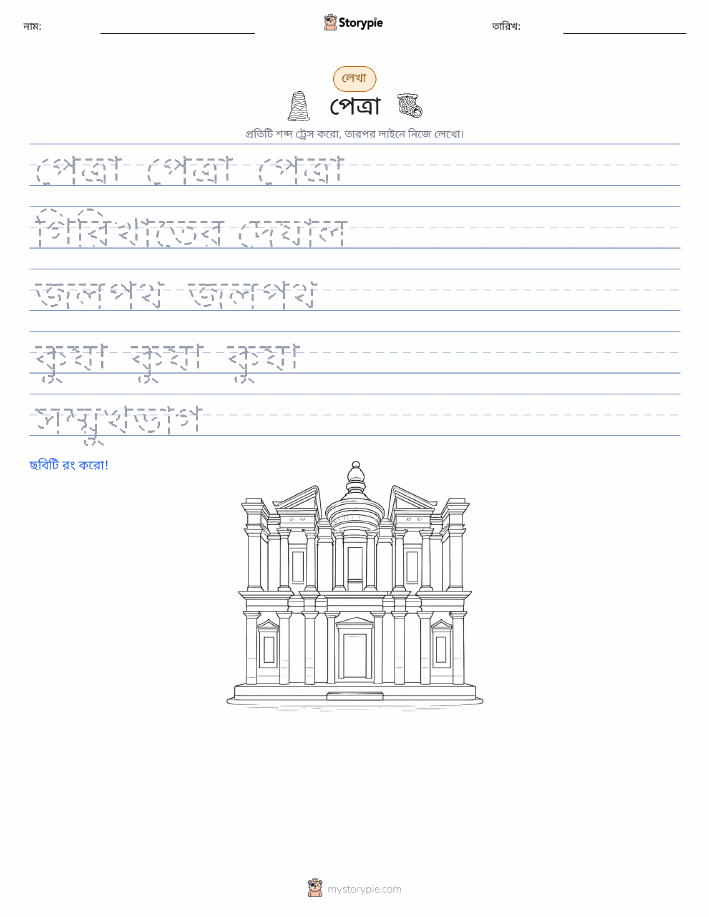 নাম:
Storypie
তারিখ:
লেখা
পেত্রা
প্রতিটি শব্দ ট্রেস করো, তারপর লাইনে নিজে লেখো।
পেত্রা পেত্রা পেত্রা
গিরিখাতের দেয়াল
জলপথ জলপথ
কুয়া কুয়া কুয়া
সম্মুখভাগ
ছবিটি রং করো!
mystorypie.com